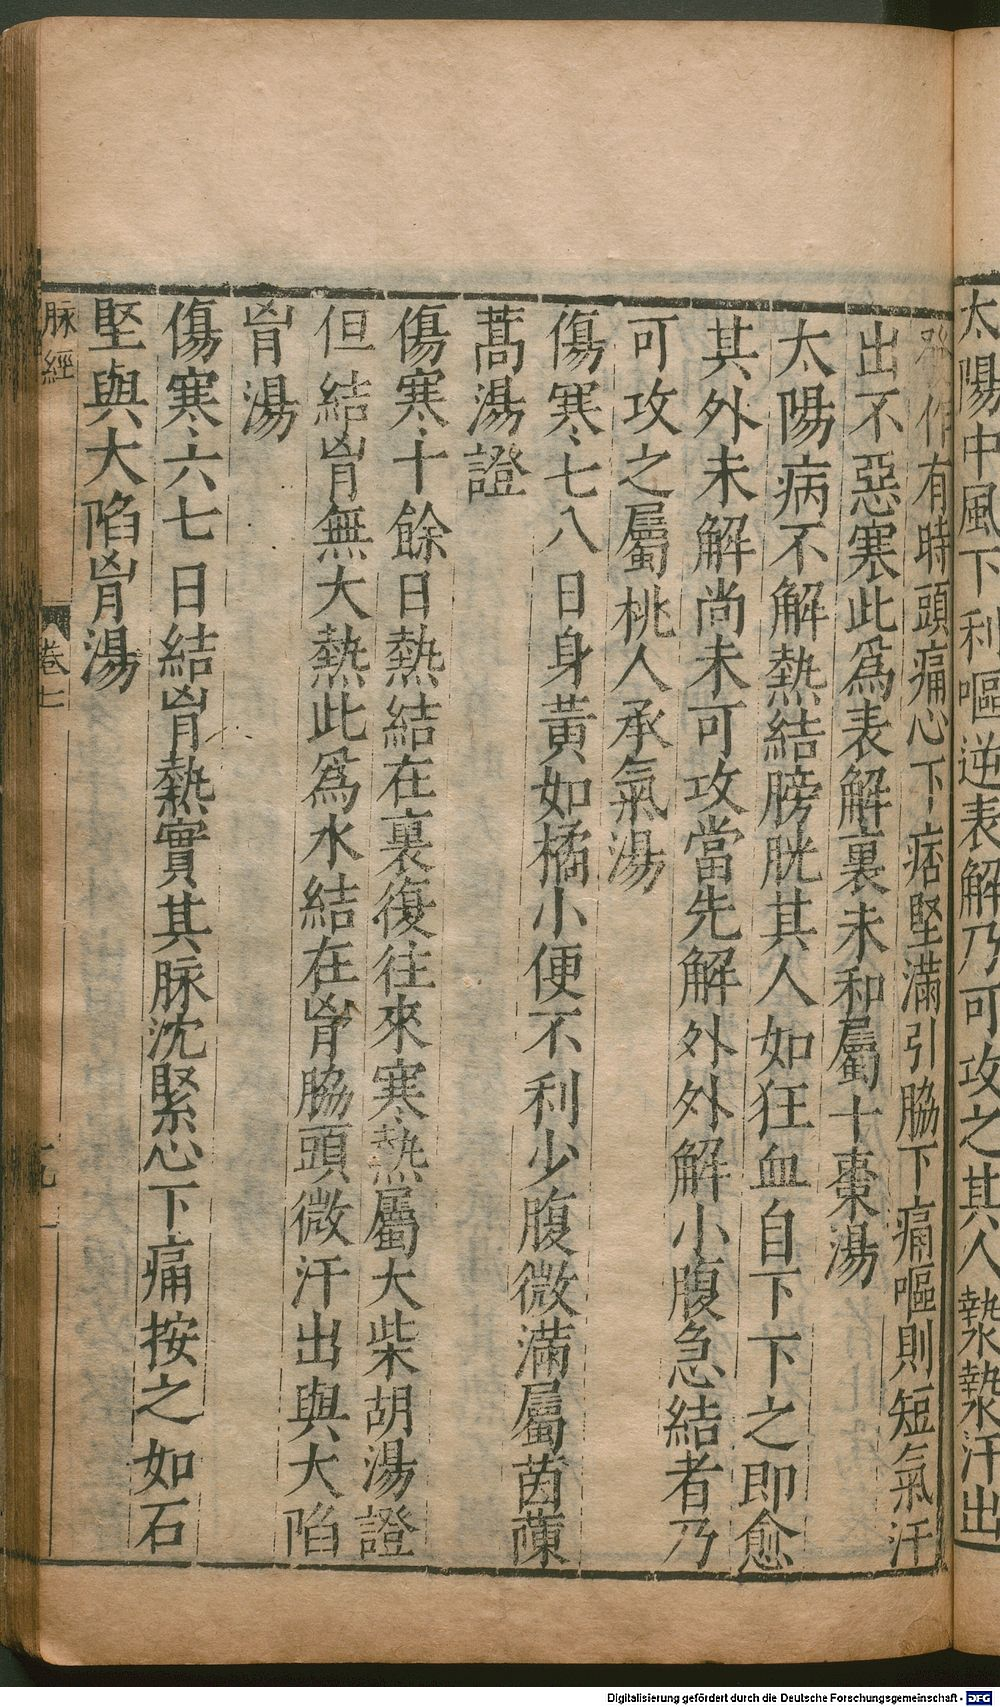 太陽中風下利嘔逆表解乃可攻之其人漐漐汗出
發作有時頭痛心下痞堅滿引脇下痛嘔則短氣汗
出不惡寒此爲表解裏未和屬十棗湯
太陽病不解熱結膀胱其人如狂血自下下之即愈
其外未解尚未可攻當先解外外解小腹急結者乃
可攻之屬桃人承氣湯
傷寒七八日身黃如橘小便不利少腹微滿屬茵蔯
蒿湯證
傷寒十餘日熱結在裏復往來寒熱屬大柴胡湯證
但結胷無大熱此爲水結在胷脇頭微汗出與大陷
胷湯
傷寒六七日結胷熱實其脉沈緊心下痛按之如石
堅與大陷胷湯
脉經
卷七
Digitalisierung gefördert durch die Deutsche Forschungsgemeinschaft - DFG